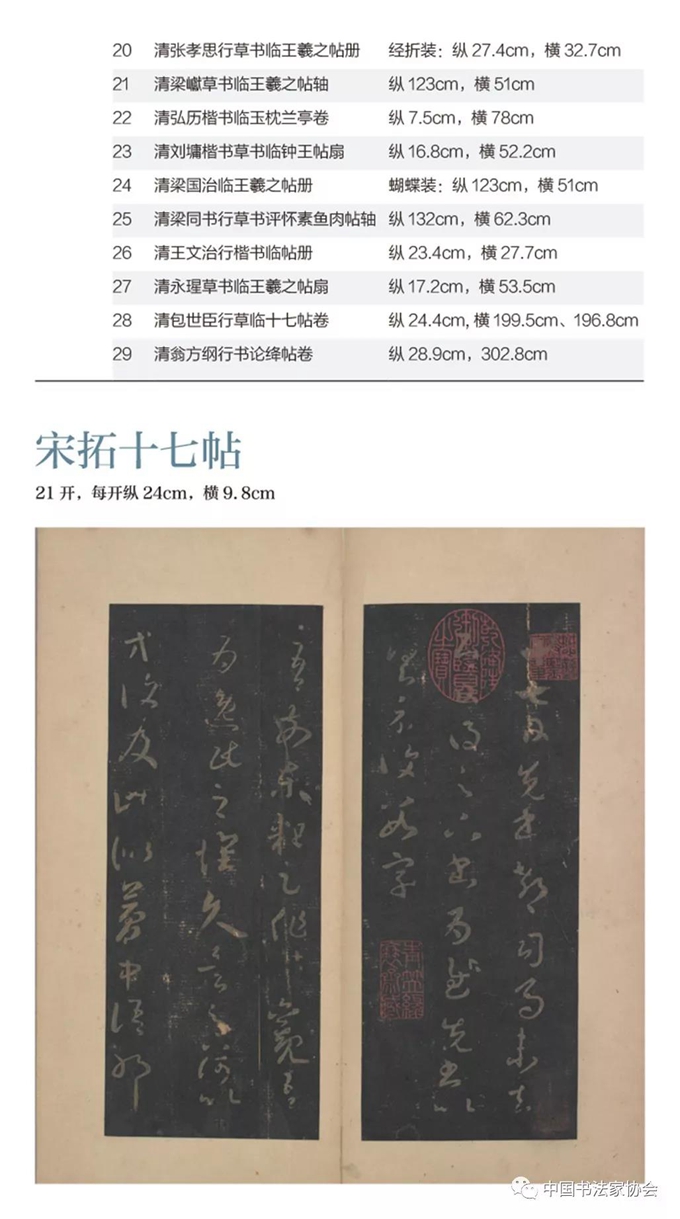 20 清张孝思行草书临王羲之帖册 经折装：纵27.4cm，横32.7cm
21 清梁巘草书临王羲之帖轴 纵123cm，横51cm
22 清弘历楷书临玉枕兰亭卷 纵7.5cm，横78cm
23 清刘墉楷书草书临钟王帖扇 纵16.8cm，横52.2cm
24 清梁国治临王羲之帖册 蝴蝶装：纵123cm，横51cm
25 清梁同书行草书评怀素鱼肉帖轴 纵132cm，横62.3cm
26 清王文治行楷书临帖册 纵23.4cm，横27.7cm
27 清永瑆草书临王羲之帖扇 纵17.2cm，横53.5cm
28 清包世臣行草临十七帖卷 纵24.4cm, 横199.5cm、196.8cm
29 清翁方纲行书论绛帖卷 纵28.9cm，302.8cm
宋拓十七帖
21开，每开纵24cm，横9.8cm
十七日先書郗司馬未去
即日得足下書為慰先書以
具示復數字
乾隆御覽之寶
吾前東粗足作佳觀吾
為逸民之懷久矣足下何以
方復及此似夢中語耶
中国书法家协会